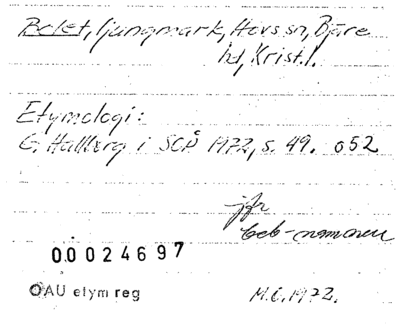 Bolet, ljungmark, Hovs sn, Bjäre
hd, Krist. l.
Etymologi:
G. Hallberg i SOÅ 1972, s. 49. o 52
jfr
-namnen
00024697
OAU etym reg
M.C. 1972.